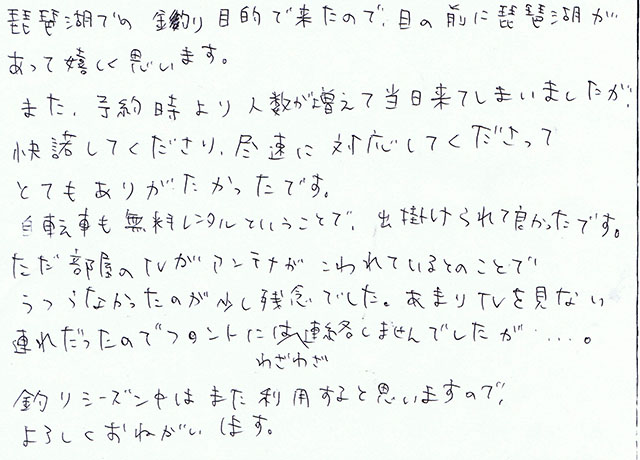 琵琶湖での釣り目的で来たので、目の前に琵琶湖が
あって嬉しく思います。
また、予約時より人数が増えて当日来てしまいましたが、
快諾してくださり、尽速に対応してくださって
とてもありがたかったです。
自転車も無料レンタルということで、出掛けられて良かったです。
ただ部屋のTVがアンテナがこわれているとのことで
うつらなかったのが少し残念でした。あまりTVを見ない
連れだったのでフロントにはわざわざ連絡しませんでしたが…。
釣りシーズン中はまた利用すると思いますので、
よろしくおねがいします。